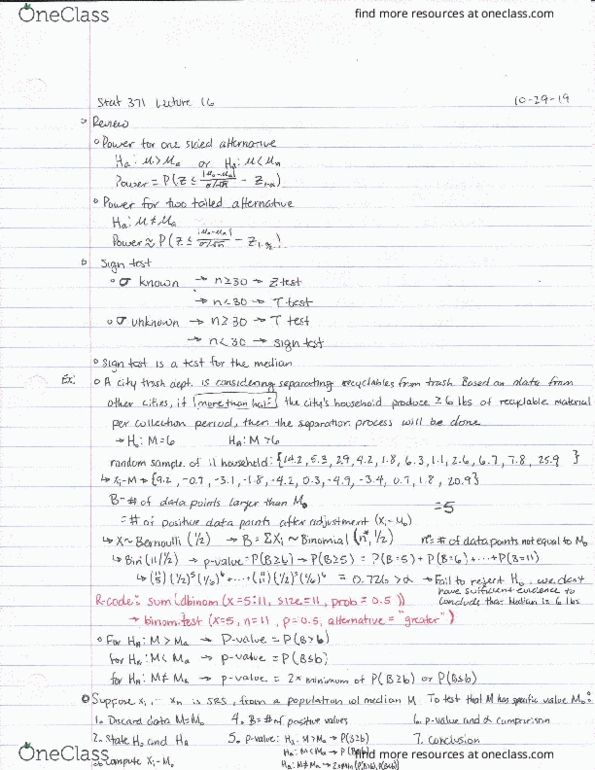 OneClass
find more resources at oneclass.com
Stat 371 Lecture 16 10-29-19
Review
Power for one sided alternative
Ha: M>Mo or Ha: M<Mo
Power = P(Z ≤ |Mo-Ma|/σ/√n - Z1-α)
Power for two tailed alternative
Ha: M≠Mo
Power ≈ P(Z ≤ |Mo-Ma|/σ/√n - Z1-α/2)
Sign test
σ known → n≥30 → Z test
→ n<30 → T test
σ unknown → n≥30 → T test
→ n<30 → sign test
Sign test is a test for the median
Ex: A city trash dept. is considering separating recyclables from trash. Based on data from
other cities, if more than half the city's household produce ≥6 lbs of recyclable material
per collection period, then the separation process will be done
→ Ho: M=6 HA: M>6
random sample of 11 household: {14.2, 5.3, 2.9, 4.2, 1.8, 6.3, 1.1, 2.6, 6.7, 7.8, 25.9 }
→ xi-M = {9.2, -0.7, -3.1, -1.8, -4.2, 0.3, -4.9, -3.4, 0.7, 1.8, 20.9}
B = # of data points larger than Mo =5
= # of positive data points after adjustment (xi-Mo)
→ X~Bernoulli (1/2) → B = ΣXi ~ Binomial (n*, 1/2) n*= # of data points not equal to Mo
→ Bin(11, 1/2) → p-value = P(B≥b) → P(B≥5) = P(B=5) + P(B=6) + ... + P(B=11)
= 0.726 > α → Fail to reject Ho. we don't
have sufficient evidence to
conclude that Median is 6 lbs
R-code: sum(dbinom (x=5:11, size=11, prob=0.5))
→ binom.test (x=5, n=11, p=0.5, alternative="greater")
For HA: M>Mo → P-value = P(B≥b)
for HA: M<Mo → p-value = P(B≤b)
for HA: M≠Mo → p-value = 2x minimum of P(B≥b) or P(B≤b)
Suppose x1, ... xn is SRS, from a population w/ median M. To test that M has specific value Mo:
1. Discard data M=Mo 4. B= # of positive values 6. p-value and α comparison
2. State Ho and HA 5. p-value: HA: M>Mo → P(B≥b) 7. conclusion
HA: M<Mo → P(B≤b)
Compute xi-Mo HA: M≠Mo → 2xMin(P(B≥b), P(B≤b))
OneClass
find more resources at oneclass.com